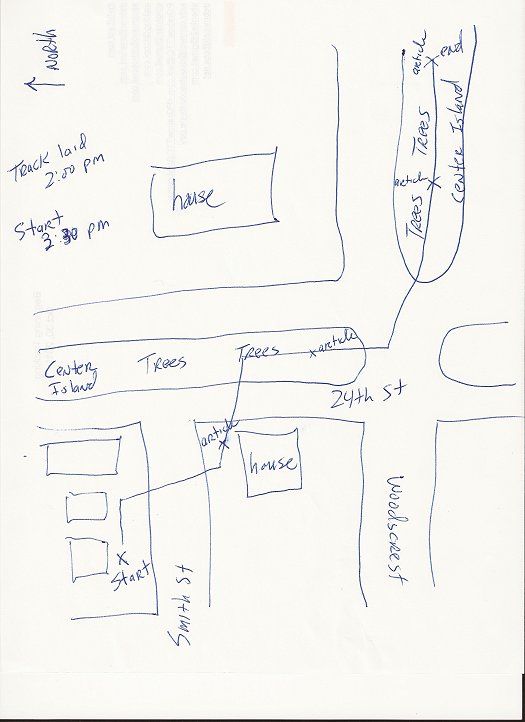 North
Track laid
2:00 pm
Start
2:30 pm
house
article
end
Trees
Center Island
article
Trees
Center
Island
Trees
Trees
article
24th St
article
house
Start
Smith St
Woodscrest